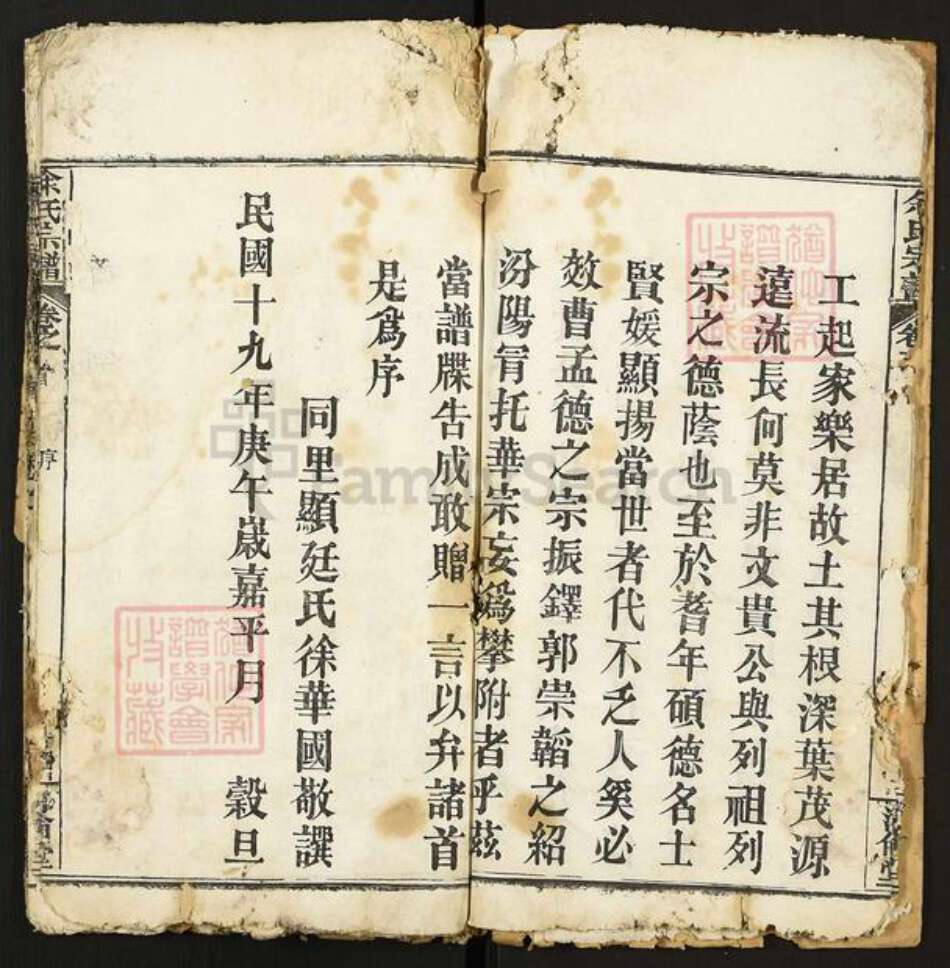 工起家樂居故土其根深葉茂源
遠流長何莫非文貴公與列祖列
宗之德蔭也至於耆年碩德名士
賢媛顯揚當世者代不乏人奚必
效曹孟德之宗振鐸郭崇韜之紹
汾陽胥托華宗妄為攀附者乎茲
當譜牒告成敢贈一言以弁諸首
是為序
同里顯廷氏徐華國敬譔
民國十九年庚午歲嘉平月 穀旦
余氏宗譜
卷之首
序
FamilySearch